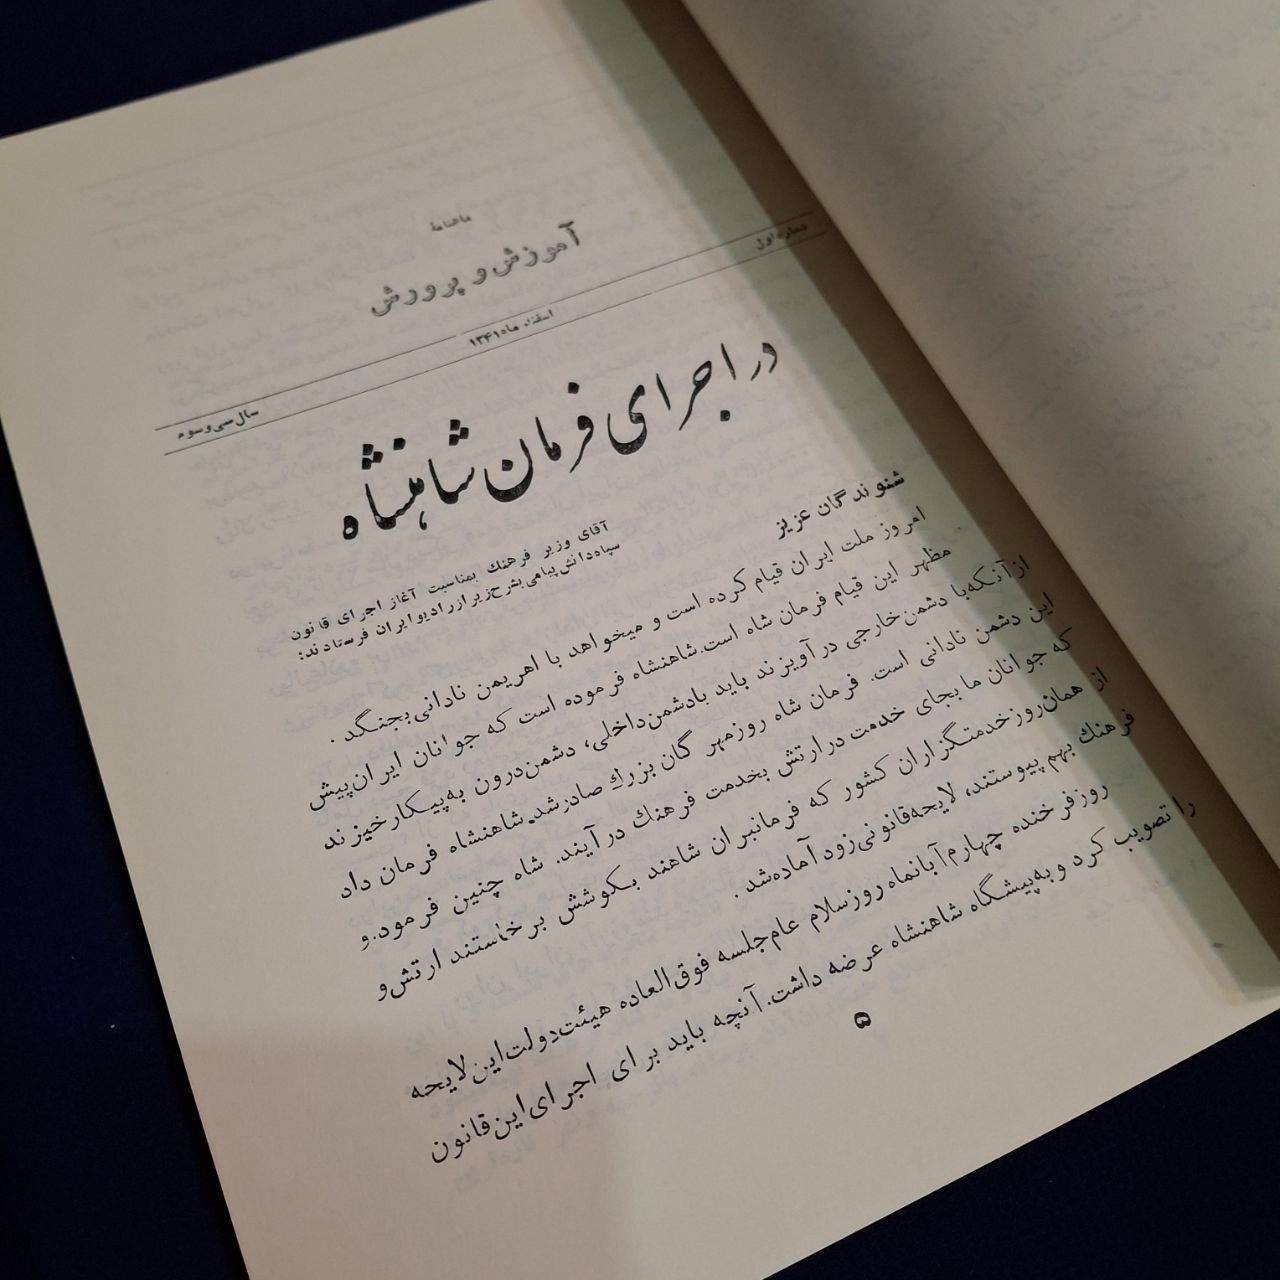 ماهنامهٔ
آموزش و پرورش
شماره اول
اسفند ماه ۱۳۴۱
سال سی و سوم
در اجرای فرمان شاهنشاه
آقای وزیر فرهنك بمناسبت آغاز اجرای قانون
سپاه دانش پیامی بشرح زیر از رادیو ایران فرستادند:
شنوندگان عزیز
امروز ملت ایران قیام کرده است و میخواهد با اهریمن نادانی بجنگد.
مظهر این قیام فرمان شاه است. شاهنشاه فرموده است که جوانان ایران پیش
از آنکه با دشمن خارجی در آویزند باید بادشمن داخلی، دشمن درون به پیکار خیزند
این دشمن نادانی است. فرمان شاه روز مهر گان بزرك صادر شد. شاهنشاه فرمان داد
که جوانان ما بجای خدمت در ارتش بخدمت فرهنك در آیند. شاه چنین فرمود. و
از همان روز خدمتگزاران کشور که فرمانبران شاهند بکوشش برخاستند ارتش و
فرهنك بهم پیوستند، لایحه قانونی زود آماده شد.
روز فرخنده چهارم آبانماه روز سلام عام جلسه فوق العاده هیئت دولت این لایحه
را تصویب کرد و به پیشگاه شاهنشاه عرضه داشت. آنچه باید برای اجرای این قانون
۵